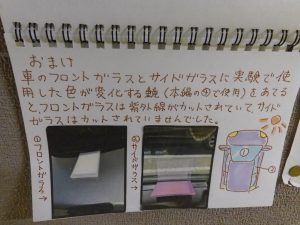 おまけ
車のフロントガラスとサイドガラスに実験で使
用した色が変化する鏡(本編の④で使用)をあてる
とフロントガラスは紫外線がカットされていて、サイド
ガラスはカットされていませんでした。
①フロントガラス→
②サイドガラス→
①
②